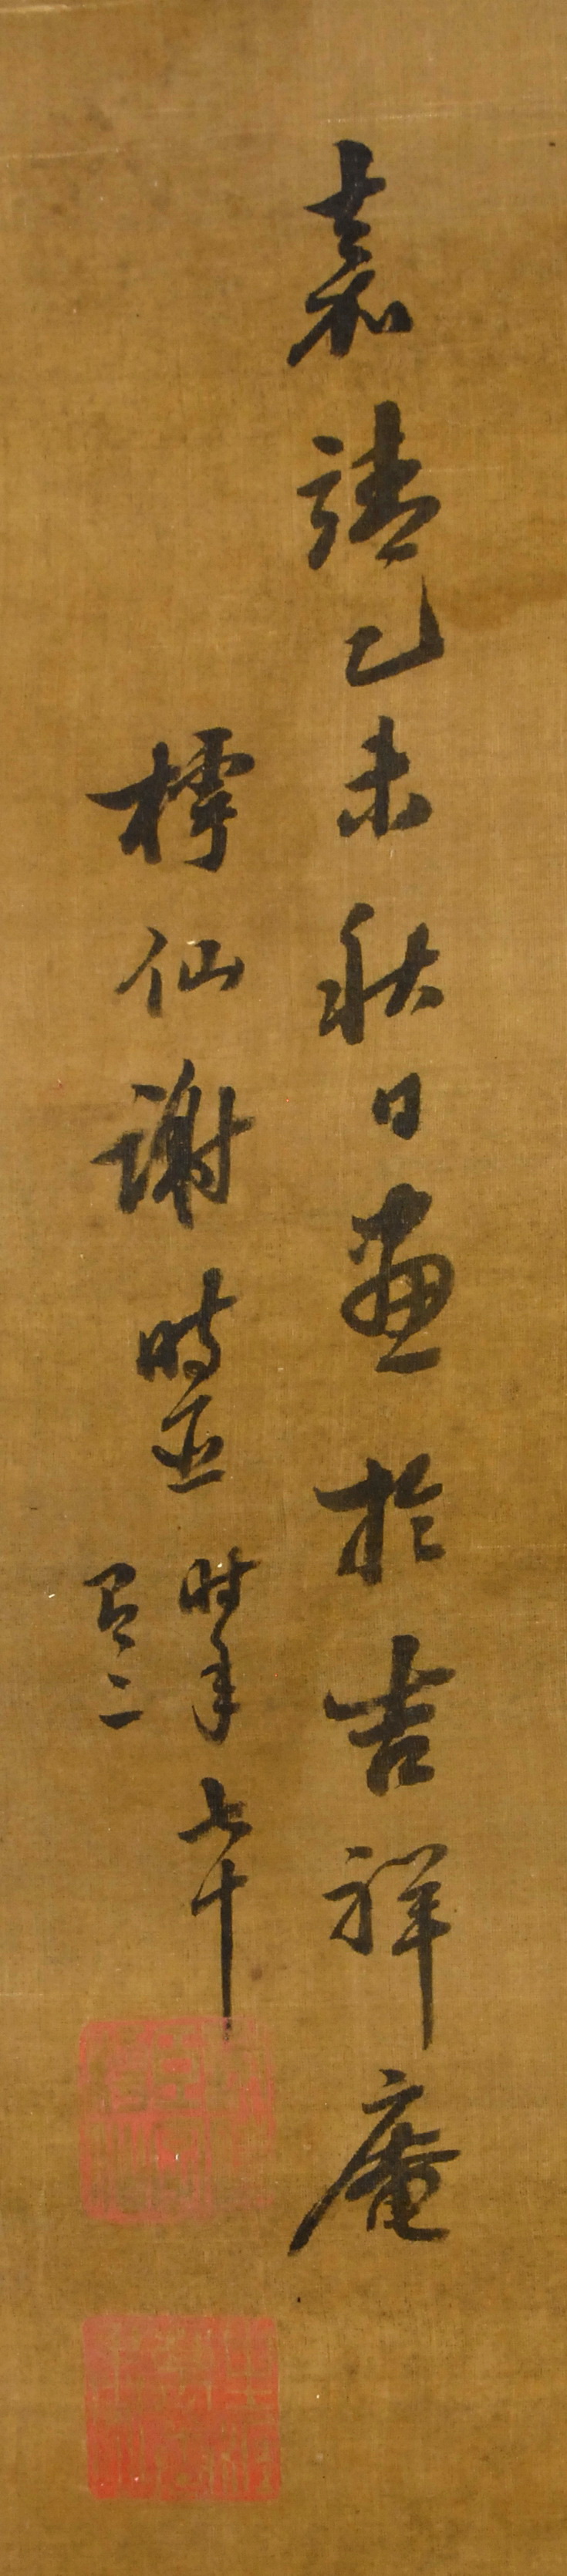 嘉靖乙未秋日畫於吉祥庵
樗仙謝時臣
時年七十
有二